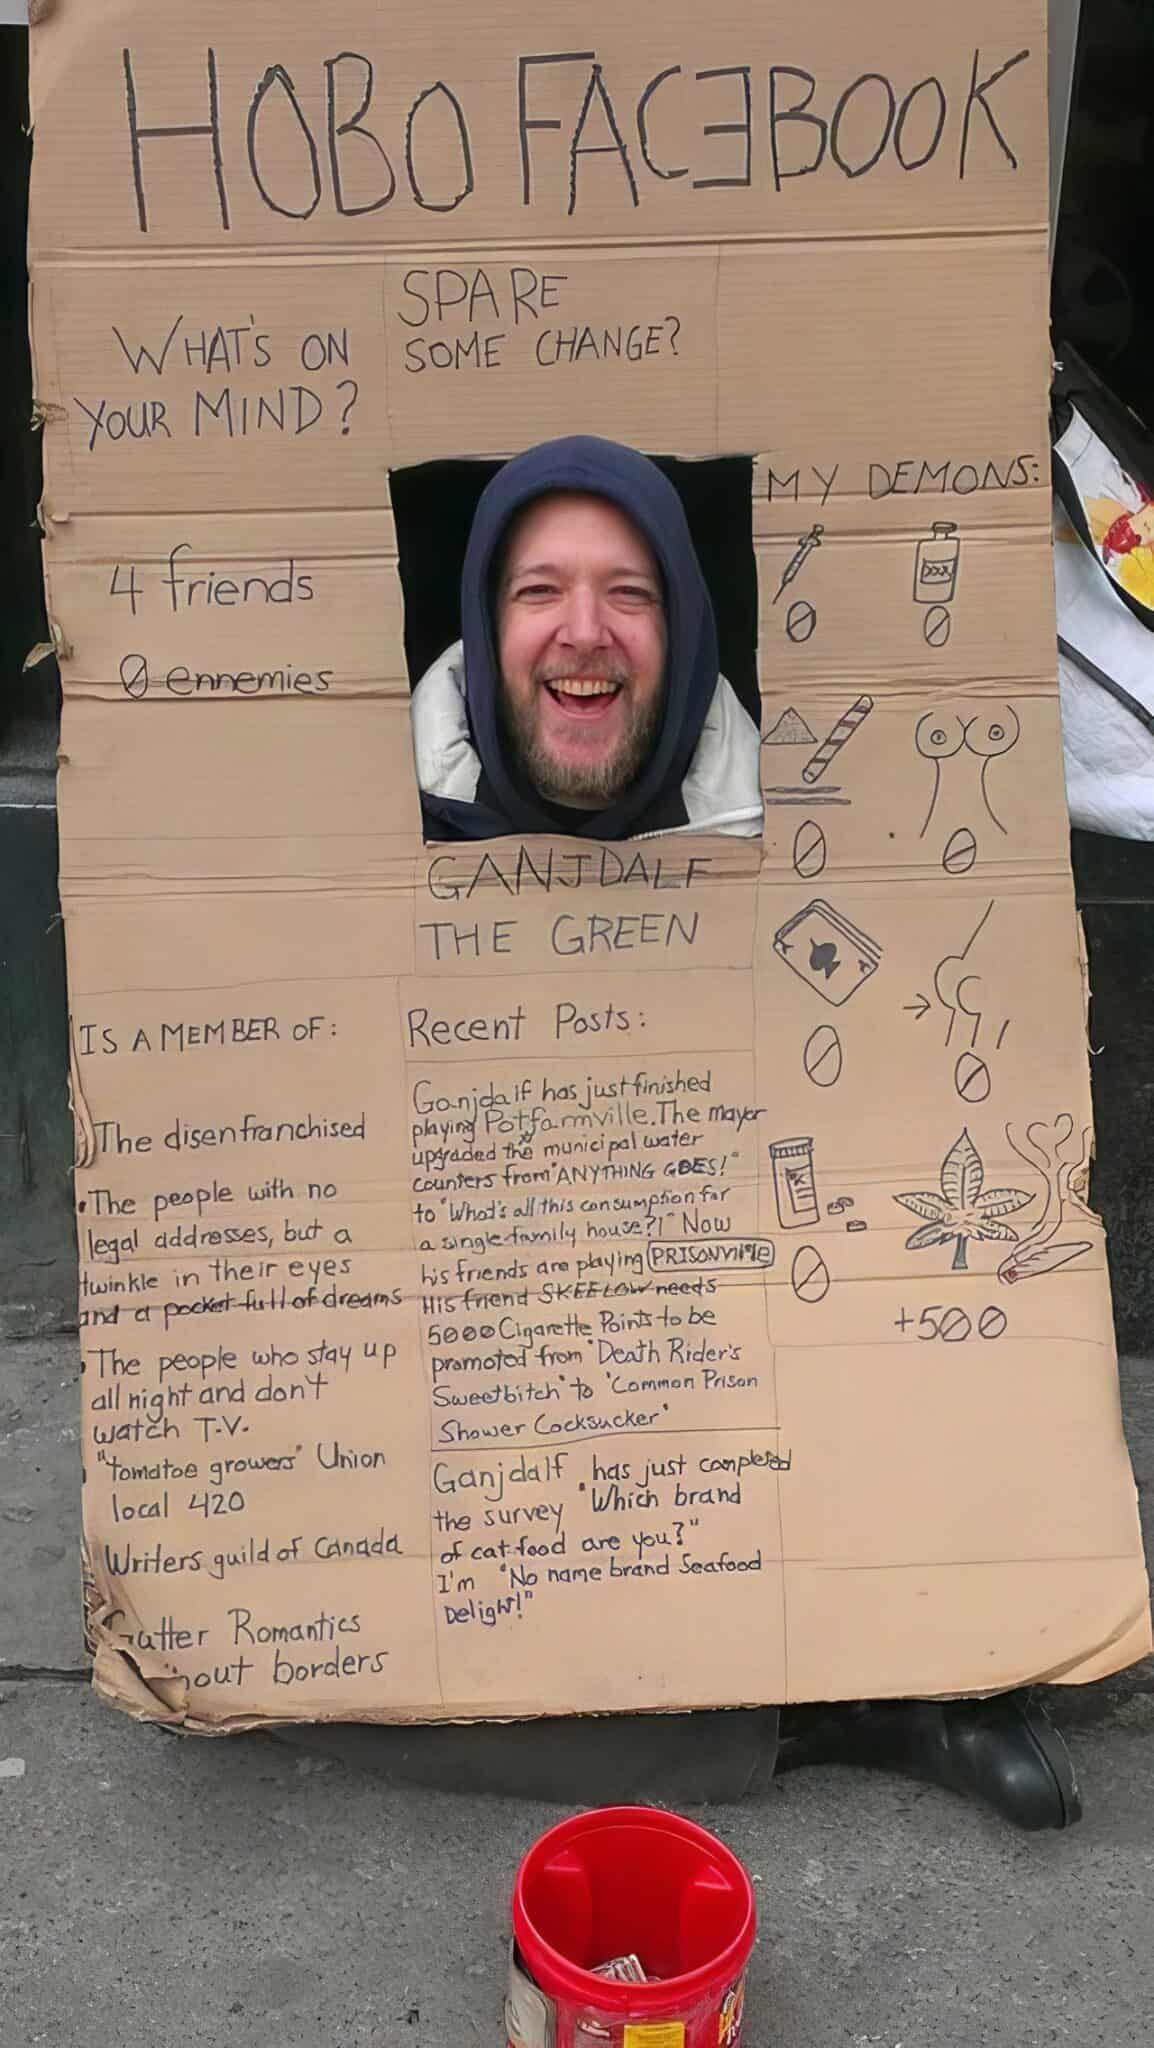 HOBO FACEBOOK
WHAT'S ON
YOUR MIND?
SPARE
SOME CHANGE?
4 friends
0 ennemies
MY DEMONS:
XXX
0
0
0
0
A
A
0
0
Rx
0
+500
GANJDALF
THE GREEN
IS A MEMBER OF:
The disenfranchised
• The people with no
legal addresses, but a
twinkle in their eyes
and a pocket full of dreams
• The people who stay up
all night and don't
watch T.V.
"tomatoe growers" Union
local 420
Writers guild of Canada
Gutter Romantics
hout borders
Recent Posts:
Ganjdalf has just finished
playing Potfarmville. The mayor
upgraded the municipal water
counters from "ANYTHING GOES!"
to "What's all this consumption for
a single-family house?!" Now
his friends are playing PRISONville
His friend SKEELOW needs
5000 Cigarette Points to be
promoted from "Death Rider's
Sweetbitch" to "Common Prison
Shower Cocksucker"
Ganjdalf has just completed
the survey "Which brand
of cat food are you?"
I'm "No name brand Seafood
Delight!"